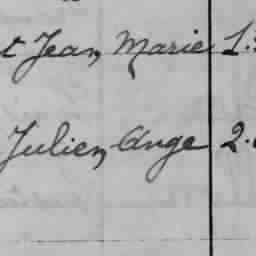 t Jean, Marie 1.
Julien, Ange 2.